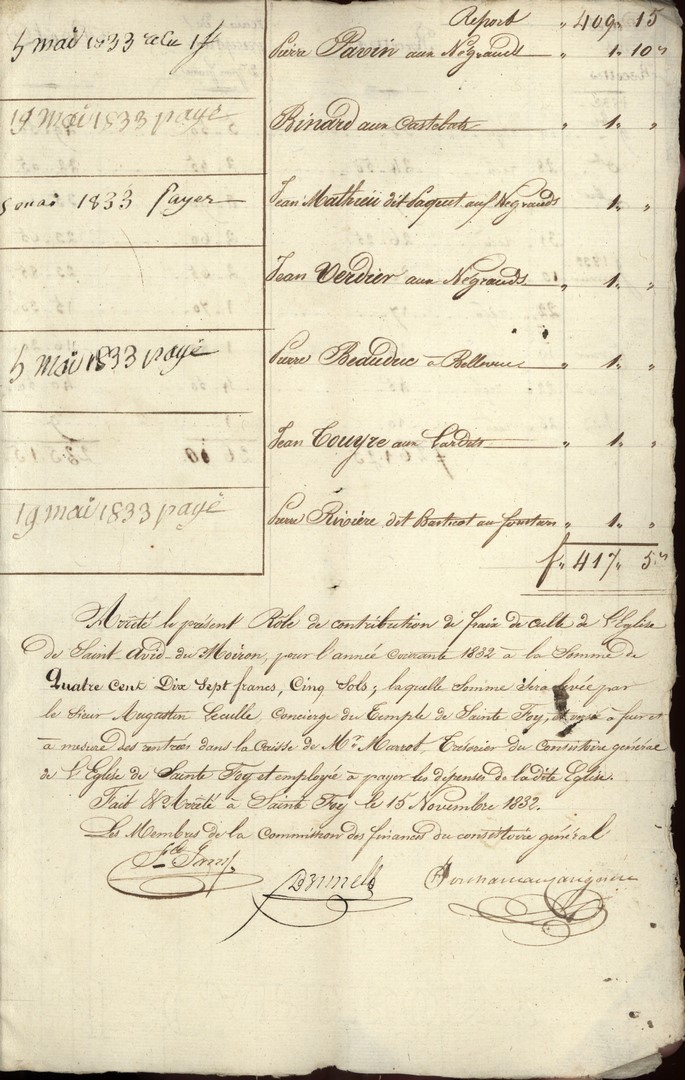 Report " 409 " 15
5 mai 1833 reçu 1f Pierre Pavin aux Négrauds " 1 " 10 "
19 mai 1833 payé Binard aux Castebats " 1 " "
5 mai 1833 payer Jean Mathieu dit Paquet aux Négrauds " 1 " "
Jean Verdier aux Négrauds " 1 " "
5 mai 1833 payé Pierre Beauduc à Bellevue " 1 " "
Jean Touyre aux " 1 " "
19 mai 1833 payé Pierre Rivière dit au " 1 " "
f " 417 " 5 "
Arrêté le présent Rôle de contribution de fraix de culte de l'Eglise
de Saint Avid du Moiron, pour l'année courante 1832 à la Somme de
Quatre cent Dix Sept francs, Cinq Sols; laquelle Somme sera levée par
le Sieur Augustin Leculle, Concierge du Temple de Sainte Foy, et versé à fur et
à mesure des rentrées dans la Caisse de Mr. Marrot, Trésorier du Consistoire général
de l'Eglise de Sainte Foy et employée à payer les dépenses de la dite Eglise.
Fait & Arrêté à Sainte Foy le 15 Novembre 1832.
Les Membres de la Commission des finances du consistoire général